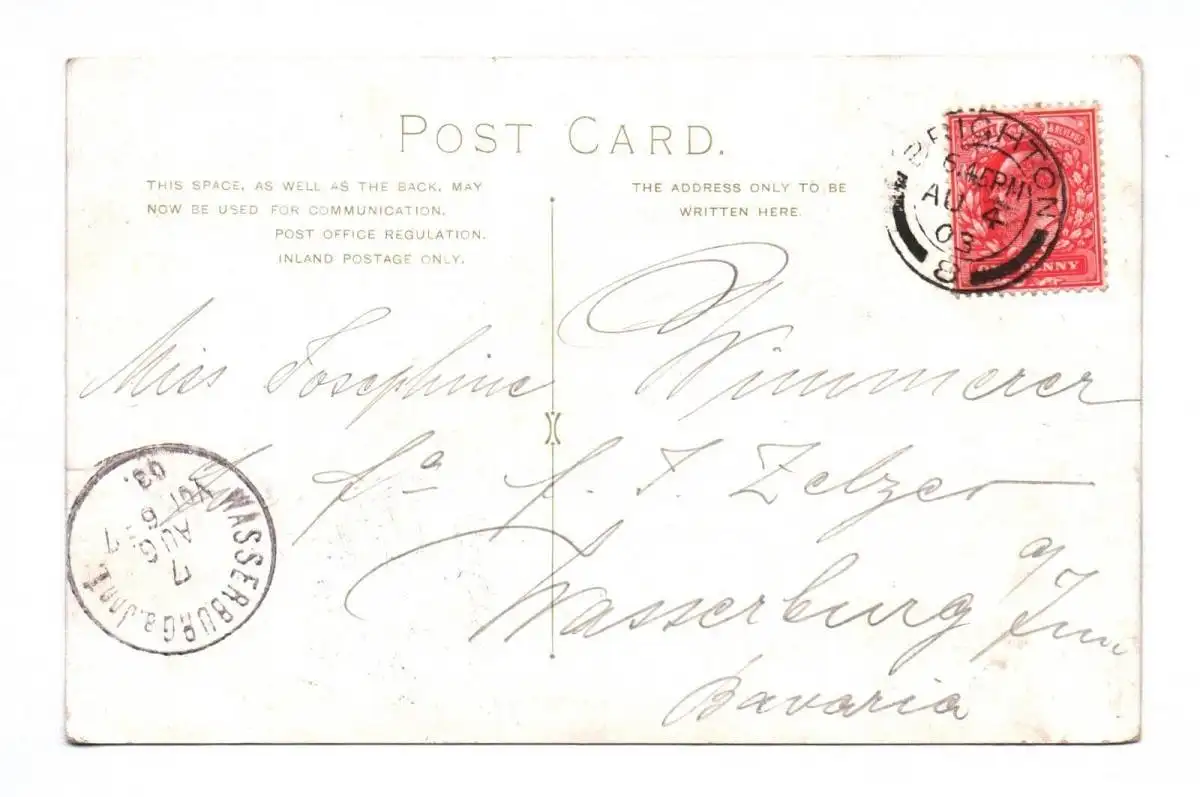 POST CARD.
THIS SPACE, AS WELL AS THE BACK, MAY
NOW BE USED FOR COMMUNICATION.
POST OFFICE REGULATION.
INLAND POSTAGE ONLY.
THE ADDRESS ONLY TO BE
WRITTEN HERE.
BRIGHTON
6.45PM
AU 4
03
8
& REVENUE
ONE PENNY
Miss Josephine Wimmerer
fa f. J. Zelzer
Wasserburg a/Inn
Bavaria
WASSERBURG a. Inn I.
7
AUG.
6-7
VOR
03.